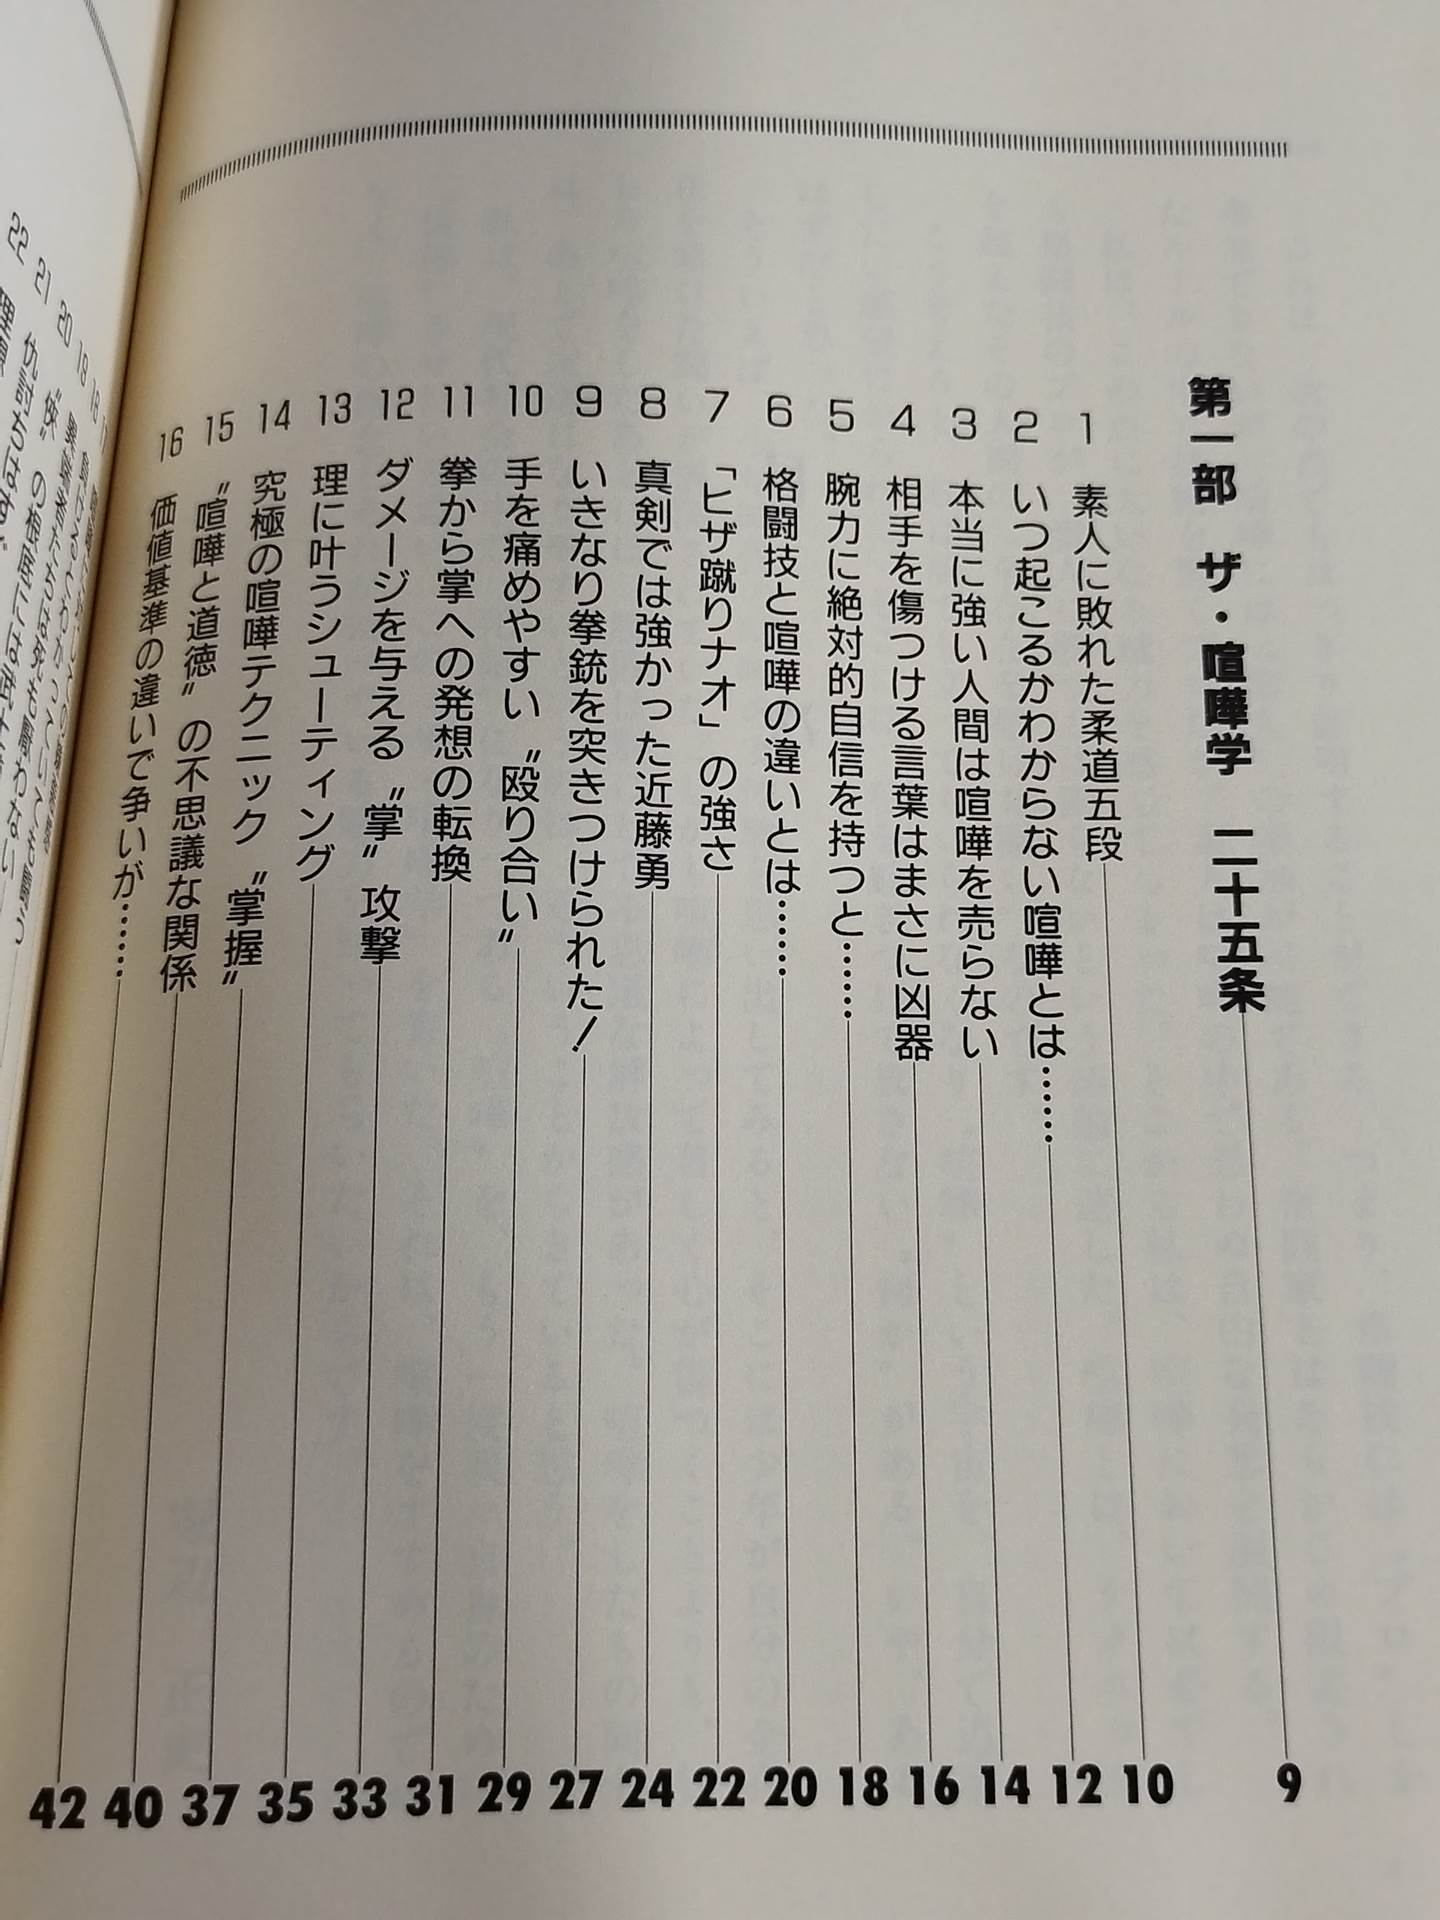 第一部　ザ・喧嘩学　二十五条 9
1　素人に敗れた柔道五段 10
2　いつ起こるかわからない喧嘩とは…… 12
3　本当に強い人間は喧嘩を売らない 14
4　相手を傷つける言葉はまさに凶器 16
5　腕力に絶対的自信を持つと…… 18
6　格闘技と喧嘩の違いとは…… 20
7　「ヒザ蹴りナオ」の強さ 22
8　真剣では強かった近藤勇 24
9　いきなり拳銃を突きつけられた！ 27
10　手を痛めやすい〝殴り合い〟 29
11　拳から掌への発想の転換 31
12　ダメージを与える〝掌〟攻撃 33
13　理に叶うシューティング 35
14　究極の喧嘩テクニック〝掌握〟 37
15　〝喧嘩と道徳〟の不思議な関係 40
16　価値基準の違いで争いが…… 42
17
18
19
20
21
22